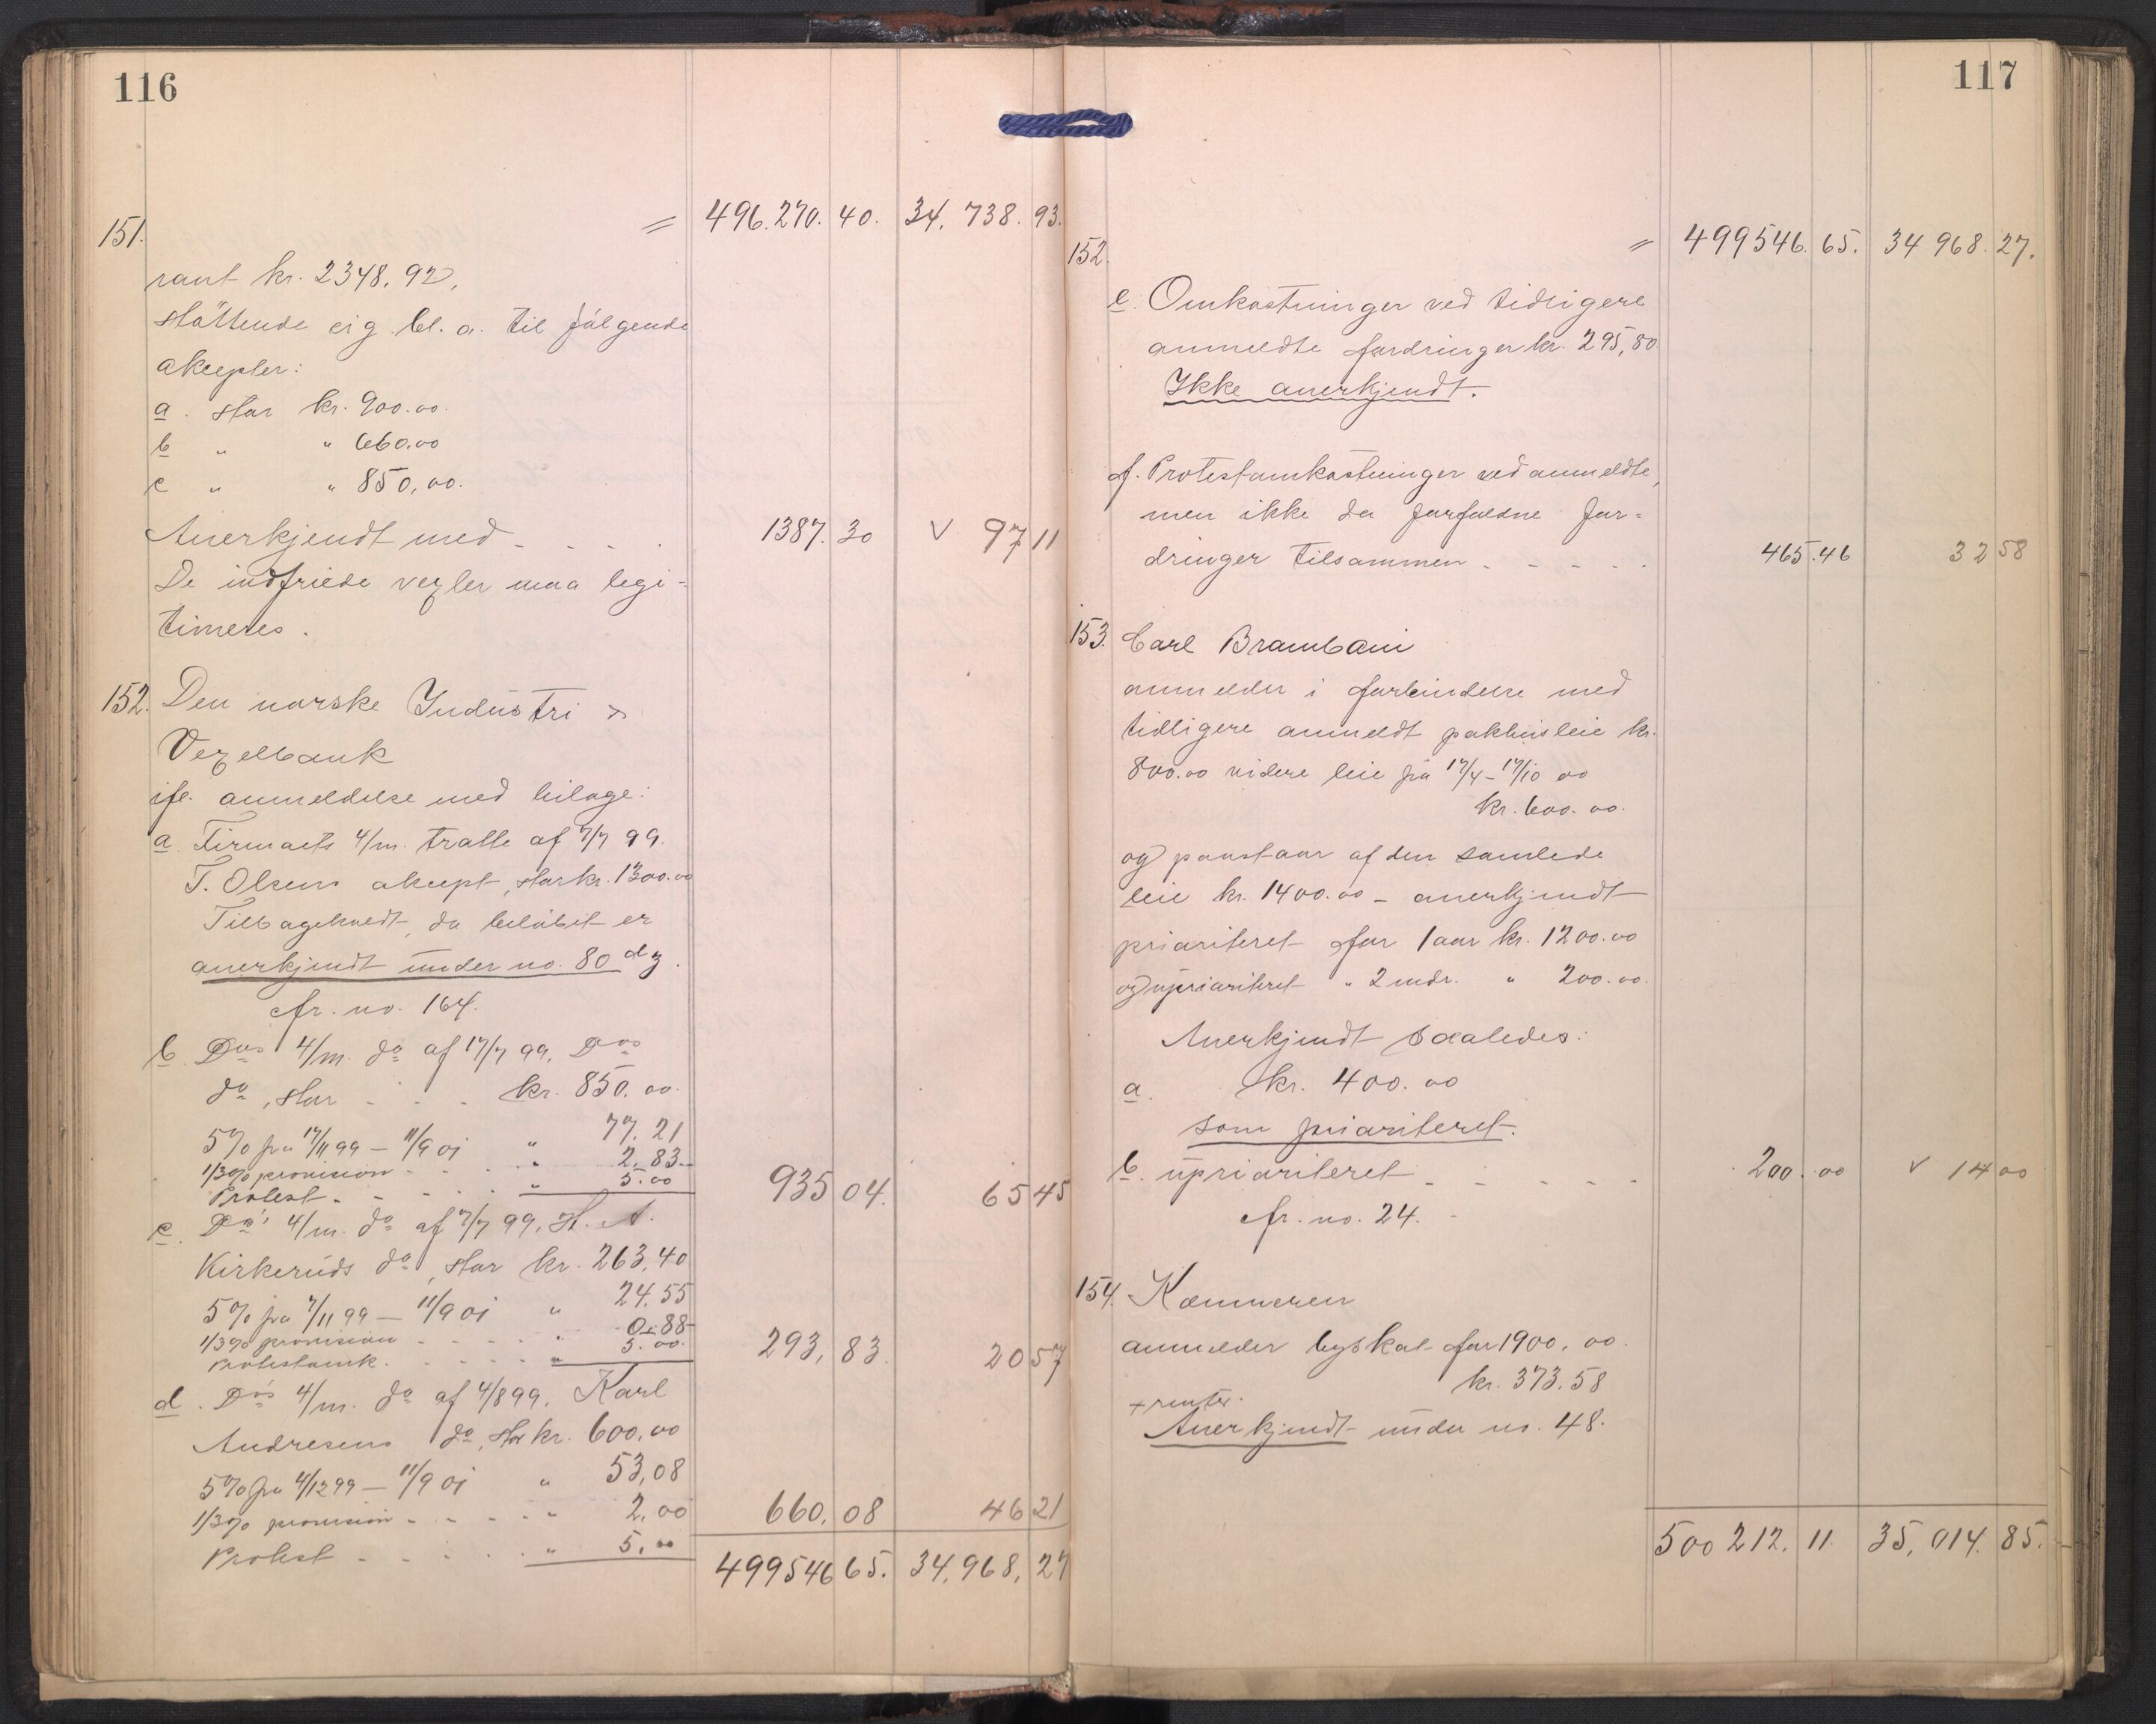 116
= 496.270. 40. 34. 738. 93.
151.
rant kr. 2348,92,
støttende sig bl. a. til følgende
akcepter:
a. stor kr. 900.00.
b " " 660.00
c " " 850,00.
Anerkjendt med - - - . 1387. 30 V 97 11
De indfriede vexler maa legi-
timeres.
152. Den norske Industri &
Vexelbank
ifl. anmeldelse med bilage:
a. Firmaets 4/m. tratte af 7/7 99.
T. Olsens akcept, stor kr. 1300.00
Tilbagekaldt, da beløbet er
anerkjendt under no. 80 dz.
cfr. no. 164.
b. Dos 4/m. do af 17/7 99, Dos
do, stor - - - kr. 850.00.
5% fra 17/11 99 - 11/9 01 " 77.21
1/3% provision - - - " 2.83
Protest - - - - " 5.00 935 04. 65 45
c. Do's 4/m. do af 7/7 99, H. A.
Kirkeruds do, stor kr. 263,40
5% fra 7/11 99 - 11/9 01 " 24.55
1/3% provision - - - " 0.88
Protestomk. - - - - " 5.00. 293, 83. 20 57
d. Do's 4/m. do af 4/8 99, Karl
Andresens do, stor kr. 600,00
5% fra 4/12 99 - 11/9 01 " 53,08
1/3% provision - - - - " 2,00 660, 08 46 21
Protest - - - - - " 5,00
499546 65. 34,968, 27
117
= 499546. 65. 34 968. 27.
152.
e. Omkostninger ved tidligere
anmeldte fordringer kr. 295,80.
Ikke anerkjendt.
f. Protestomkostninger ved anmeldte,
men ikke da forfaldne for=
dringer tilsammen - - - - - 465.46 32 58
153. Carl Brambani
anmelder i forbindelse med
tidligere anmeldt pakhusleie kr.
800.00 videre leie fra 17/4 - 17/10 00
kr. 600.00.
og paastaar af den samlede
leie kr. 1400.00 - anerkjendt
prioriteret for 1 aar kr. 1200.00
og uprioriteret " 2 mdr. " 200.00.
Anerkjendt saaledes:
a. kr. 400.00
som prioriteret.
b. uprioriteret - - - - - 200.00 v 14 00
cfr. no. 24.
154. Kæmneren
anmelder byskat for 1900,00.
kr. 373.58
+ renter.
Anerkjendt under no. 48.
500 212. 11. 35,014. 85.